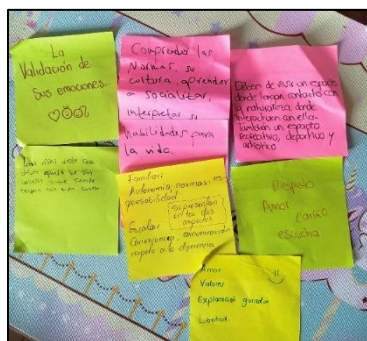 La
Validación de
Sus emociones.
Comprender las
Normas, su
cultura, aprender
a socializar,
interpretar su
habilidades para
la vida.
Deben de vivir un espacio
donde tengan contacto con
la naturaleza, donde
interactuen con ella.
También un espacio
recreativo, deportivo y
artístico
Los niños
Familiar:
Autonomía, normas, res-
ponsabilidad
Se presentan
en los dos
aspectos
Escolar:
Convivencia, comunicación
respeto a la diferencia
Respeto
Amor
cariño
escucha
Amor
Valores
Exploración guiada
Lealtad